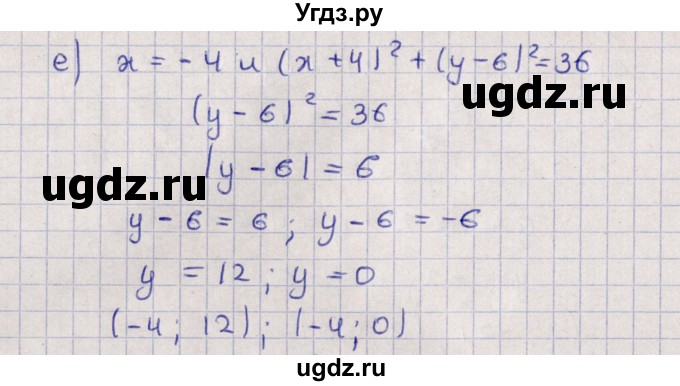 Угдз.ру
е) x = - 4 и (x + 4)² + (y - 6)² = 36
ugdz.ru
(y - 6)² = 36
|y - 6| = 6
ugdz.ru
y - 6 = 6 ; y - 6 = -6
y = 12 ; y = 0
(-4 ; 12) ; (-4 ; 0)
ugdz.ru